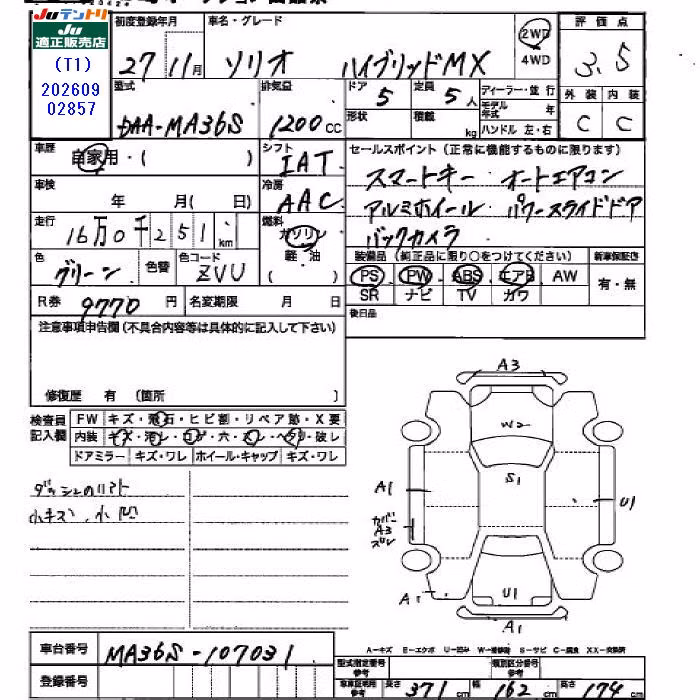 Juテントリ
Ju
適正販売店
(T1)
202609
02857
初度登録年月
27 11月
車名・グレード
ソリオ ハイブリッドMX
2WD
4WD
評価点
3.5
型式
DAA-MA36S
排気量
1200cc
ドア
5
定員
5人
ディーラー・並行
モデル年式 年
ハンドル 左・右
形状
積載 kg
外装 内装
C C
車歴
自家用・( )
シフト
IAT
車検
年 月( 日)
冷房
AAC
走行
16万0千251km
燃料
ガソリン
軽・油
( )
色
グリーン
色替
色コード
ZVU
R券 9770円
名変期限 月 日
セールスポイント(正常に機能するものに限ります)
スマートキー・オートエアコン
アルミホイール・パワースライドドア
バックカメラ
装備品(純正品に限り○をつけてください)
新車保証書
PS PW ABS エアB AW
SR ナビ TV カワ
有・無
後日品
注意事項申告欄(不具合内容等は具体的に記入して下さい)
修復歴 有 (箇所 )
検査員
記入欄
FW キズ・飛石・ヒビ割・リペア跡・X要
内装 キズ・汚レ・コゲ・穴・スレ・ヘタリ・破レ
ドアミラー キズ・ワレ ホイール・キャップ キズ・ワレ
ダッシュのリアト
小キズ、小凹
A3
W2
S1
A1
U1
カバー
A3
ズレ
U1
A1
A1
車台番号
MA36S-107031
登録番号
A−キズ E−エクボ U−凹み W−補修跡 S−サビ C−腐食 XX−交換済
型式指定番号
参考
類別区分番号
参考
車庫証明用
参考
長さ 371cm 幅 162cm 高さ 174cm